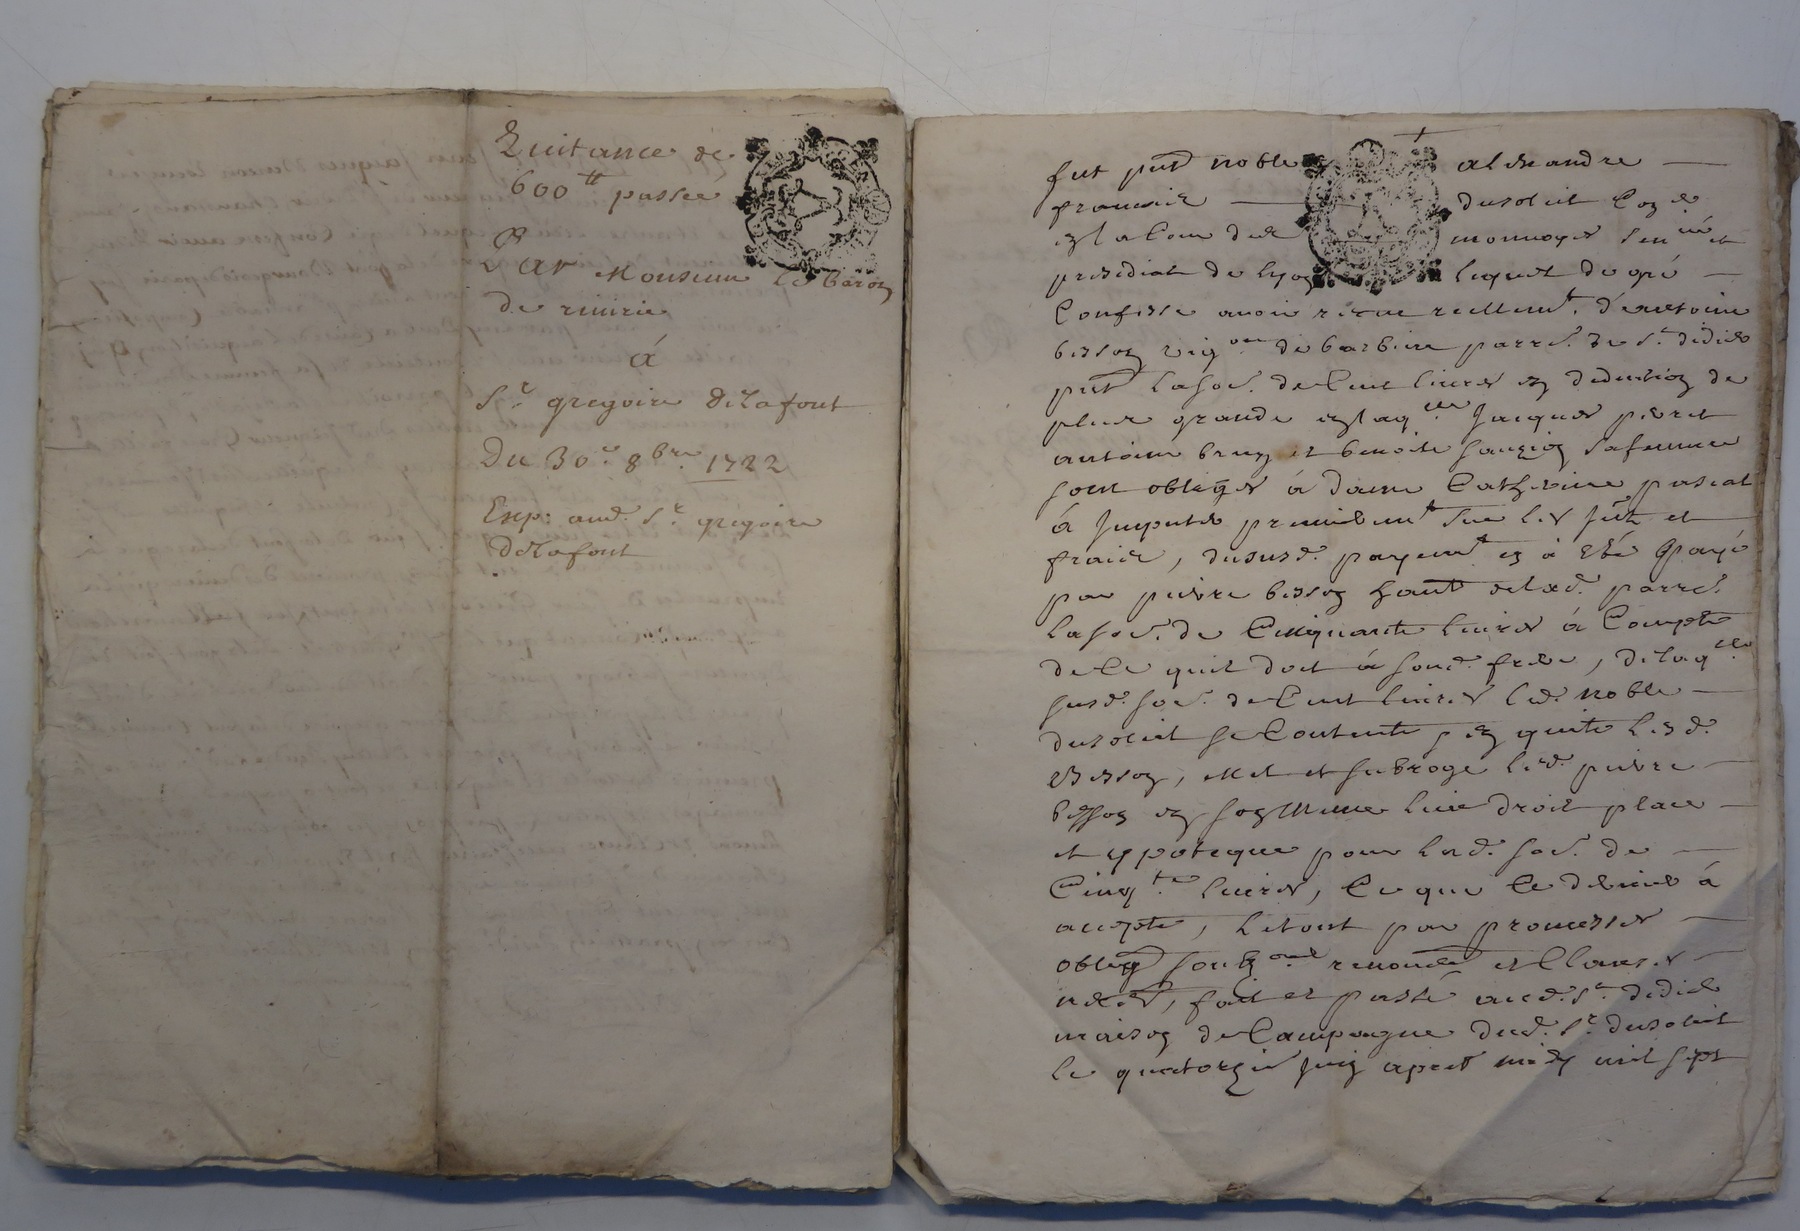 Quitance de
600tt passée
Par Monsieur le baron
de riuirie
á
Sr gregoire delafont
Du 30e 8bre 1722
Exp: aud. Sr gregoire
delafont
fut pnt noble alexandre
francois dusoleil Con.er
en la Cour des monnoyes sen.ée et
presidial de lyon lequel de gré
Confesse auoir receu reellemt d'antoine
besson vig.on de barbiere parre. de st didier
pnt la so.e de Cent liures en deduction de
plus grande en laq.elle Jacques pierret
antoine brun et benoite sa femme
sont obligés á dame Catherine pascal
á Imputer premieremt sur les Jnts et
frais, du susd. payemt en á esté payé
par pierre besson hant de lad. parre.
la so.e de Cinquante liures á Compte
de Ce quil doit á sond. frere, de laq.elle
susd. so.e de Cent liures led. noble
dusoleil se Contente, en quite lesd.
Besson, met et subroge led. pierre
besson en son mesme lieu droit place
et ypoteque pour lad. so.e de
Cinq.te liures, Ce que Ce dernier á
accepté, le tout par promesses
oblig. renon et Clauses
fait et passé aud. st didier
maison de Campagne dud. sr dusoleil
le quatorzie Juin apres midy mil sept